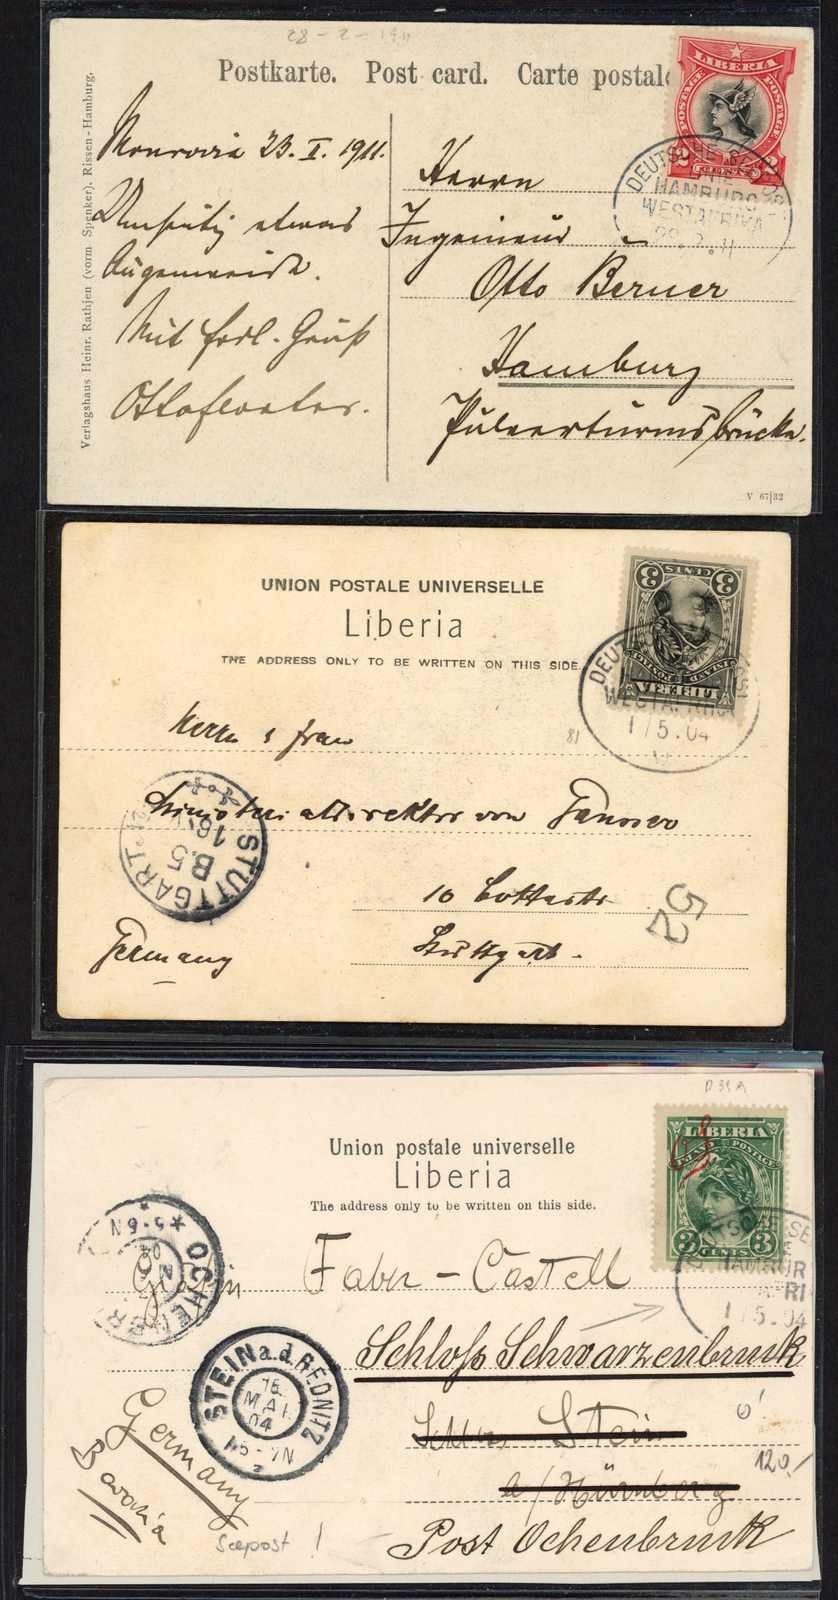 28-2-1911
Postkarte. Post card. Carte postale
LIBERIA
POSTAGE POSTAGE
2 CENTS 2
DEUTSCHE SEEPOST
LINIE
HAMBURG
WESTAFRIKA
28.2.11
Verlagshaus Heinr. Rathjen (vorm Spenker). Rissen-Hamburg.
Monrovia 23. I. 1911.
Umseitig etwas
Augenweide.
Mit frdl. Gruß
Herrn
Ingenieur
Otto Berner
Hamburg
Pulverturmsbrücke.
V 67/32
UNION POSTALE UNIVERSELLE
Liberia
THE ADDRESS ONLY TO BE WRITTEN ON THIS SIDE.
3 CENTS 3
INLAND POSTAGE
LIBERIA
WESTAFRIKA
1/5.04
81
Herrn & Frau
Ministerialdirektor von
10 Cottastr
Stuttgart.
Germany
STUTTGART
B.5
16
52
D 39 A
Union postale universelle
Liberia
The address only to be written on this side.
LIBERIA
INLAND POSTAGE
3 CENTS 3
HAMBUR
1/5.04
OCHENBR
5-6 N
Gräfin Faber-Castell
Schloß Schwarzenbruck
Schloss Stein
a/Nürnberg
Post Ochenbruck
STEIN a.d. REDNITZ
15.
MAI.
04
Germany
Bavaria
Seepost!
120.-